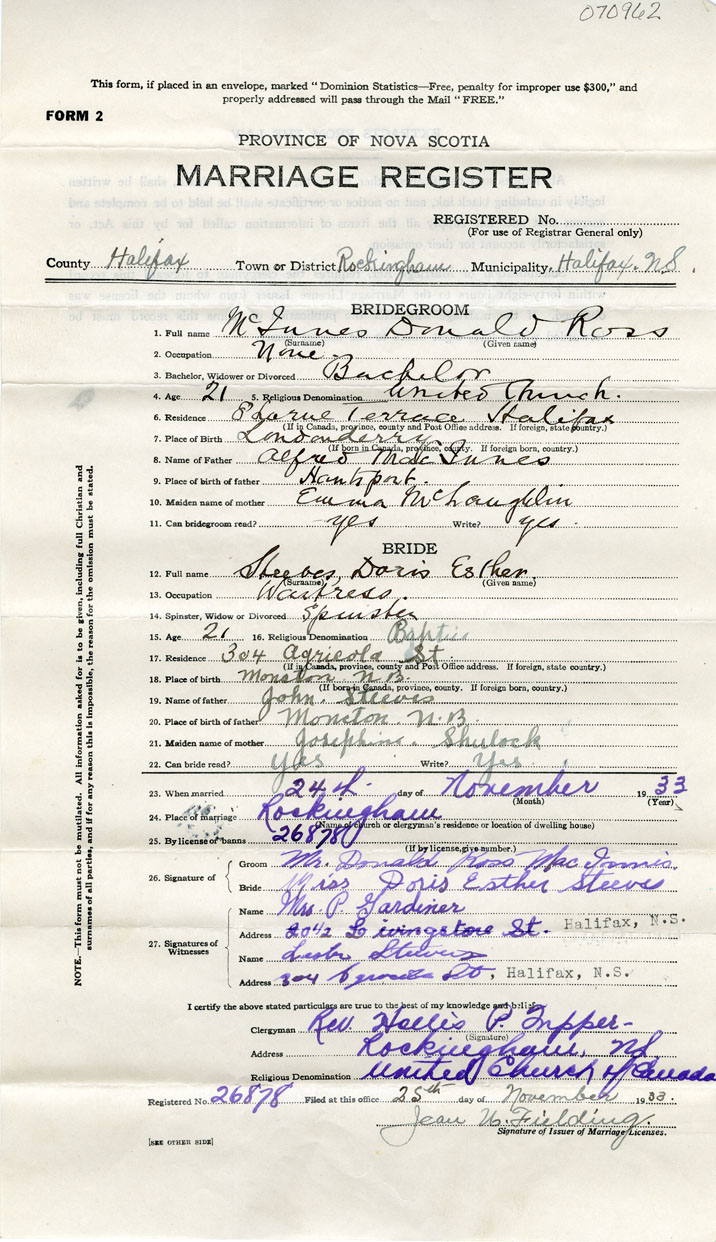 070962
This form, if placed in an envelope, marked "Dominion Statistics—Free, penalty for improper use $300," and
properly addressed will pass through the Mail "FREE."
FORM 2
PROVINCE OF NOVA SCOTIA
MARRIAGE REGISTER
REGISTERED No.
(For use of Registrar General only)
County Halifax Town or District Rockingham Municipality, Halifax. N.S.
BRIDEGROOM
1. Full name McInnes Donald Ross
(Surname) (Given name)
2. Occupation None
3. Bachelor, Widower or Divorced Bachelor
4. Age 21 5. Religious Denomination United Church.
6. Residence Terrace Halifax
(If in Canada, province, county and Post Office address. If foreign, state country.)
7. Place of Birth Londonderry
(If born in Canada, province, county. If foreign born, country.)
8. Name of Father Alfred MacInnes
9. Place of birth of father Hantsport.
10. Maiden name of mother Emma McLaughlin
11. Can bridegroom read? yes Write? yes.
BRIDE
12. Full name Steeves, Doris Esther.
(Surname) (Given name)
13. Occupation Waitress.
14. Spinster, Widow or Divorced Spinster
15. Age 21 16. Religious Denomination Baptist
17. Residence 304 Agricola St
(If in Canada, province, county and Post Office address. If foreign, state country.)
18. Place of birth Moncton N.B.
(If born in Canada, province, county. If foreign born, country.)
19. Name of father John. Steeves
20. Place of birth of father Moncton. N.B.
21. Maiden name of mother Josephine. Shulock
22. Can bride read? Yes Write? Yes
23. When married 24th day of November 1933
(Month) (Year)
24. Place of marriage Rockingham
(Name of church or clergyman's residence or location of dwelling house)
25. By license or banns 26878
(If by license, give number.)
26. Signature of
Groom Mr. Donald Ross MacInnis.
Bride Miss Doris Esther Steeves
27. Signatures of Witnesses
Name Mrs. P. Gardiner
Address Livingstone St. Halifax, N.S.
Name Steeves
Address 304 Agricola St, Halifax, N.S.
I certify the above stated particulars are true to the best of my knowledge and belief.
Clergyman Rev. Hollis P.
(Signature)
Address Rockingham, N.S.
Religious Denomination United Church of Canada
Registered No. 26878 Filed at this office 25th day of November 1933.
Jean W. Fielding.
Signature of Issuer of Marriage Licenses.
[SEE OTHER SIDE]
NOTE.—This form must not be mutilated. All information asked for is to be given, including full Christian and
surnames of all parties, and if for any reason this is impossible, the reason for the omission must be stated.